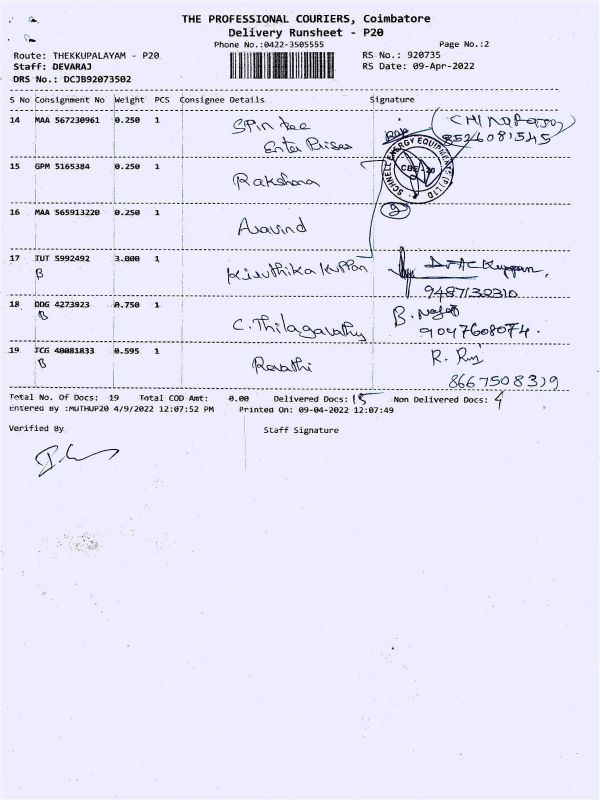 THE PROFESSIONAL COURIERS, Coimbatore
Delivery Runsheet - P20
Phone No.:0422-3505555 Page No.:2
Route: THEKKUPALAYAM - P20 RS No.: 920735
Staff: DEVARAJ RS Date: 09-Apr-2022
DRS No.: DCJB92073502
S No Consignment No Weight PCS Consignee Details Signature
14 MAA 567230961 0.250 1 Spin tec
Enter Prises
8526081545
SCHNELL ENERGY EQUIPMENTS (P) LTD
CBE-20
15 GPM 5165384 0.250 1 Rakshana
16 MAA 565913220 0.250 1 Aravind
17 TUT 5992492 3.000 1 Kiruthika Kuppan
B 9487132310
18 DDG 4273923 0.750 1 C. Thilagavathy
B 9047608074.
19 TCG 40081833 0.595 1 Revathi
B 8667508319
Total No. Of Docs: 19 Total COD Amt: 0.00 Delivered Docs: 15 Non Delivered Docs: 4
Entered By :MUTHUP20 4/9/2022 12:07:52 PM Printed On: 09-04-2022 12:07:49
Verified By Staff Signature